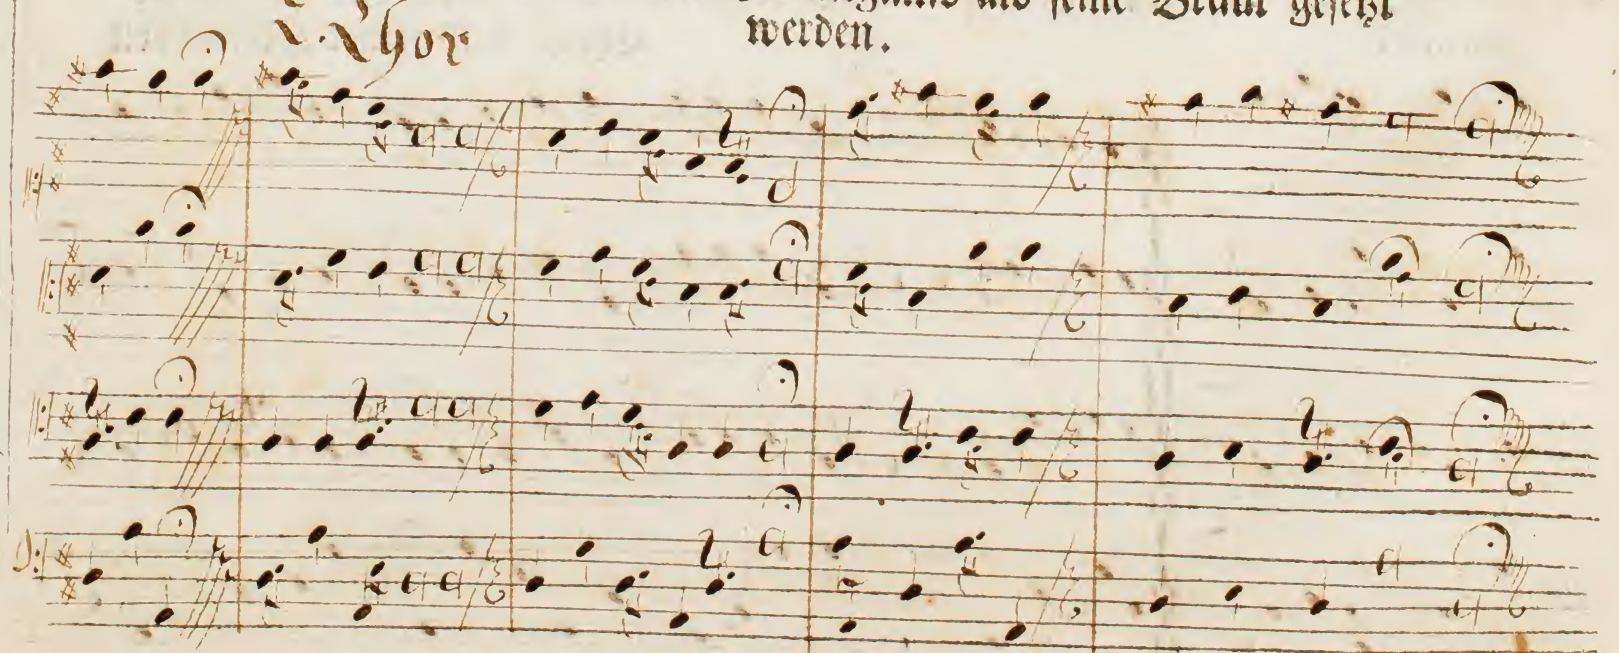 als seine Braut gesetzt
werden.
Chor